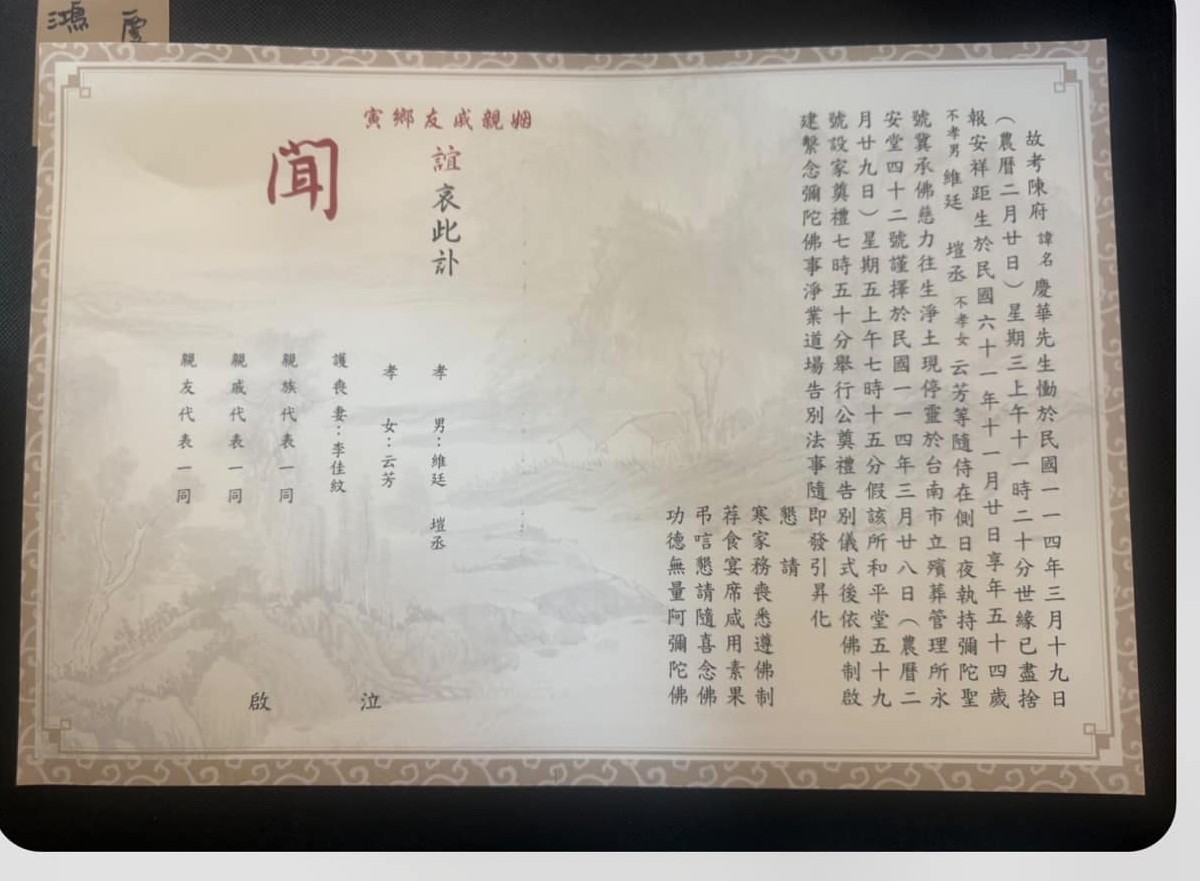 故考陳府諱名慶華先生慟於民國一一四年三月十九日
（農曆二月廿日）星期三上午十一時二十分世緣已盡捨
報安祥距生於民國六十一年十一月廿日享年五十四歲
不孝男維廷 塏丞不孝女云芳等隨侍在側日夜執持彌陀聖
號冀承佛慈力往生淨土現停靈於台南市立殯葬管理所永
安堂四十二號謹擇於民國一一四年三月廿八日（農曆二
月廿九日）星期五上午七時十五分假該所和平堂五十九
號設家奠禮七時五十分舉行公奠禮告別儀式後依佛制啟
建繫念彌陀佛事淨業道場告別法事隨即發引昇化
懇請
寒家務喪悉遵佛制
荐食宴席咸用素果
弔唁懇請隨喜念佛
功德無量阿彌陀佛
姻親戚友鄉寅
誼哀此訃
聞
孝男：維廷 塏丞
孝女：云芳
護喪妻：李佳紋
親族代表一同
親戚代表一同
親友代表一同
泣啟
鴻